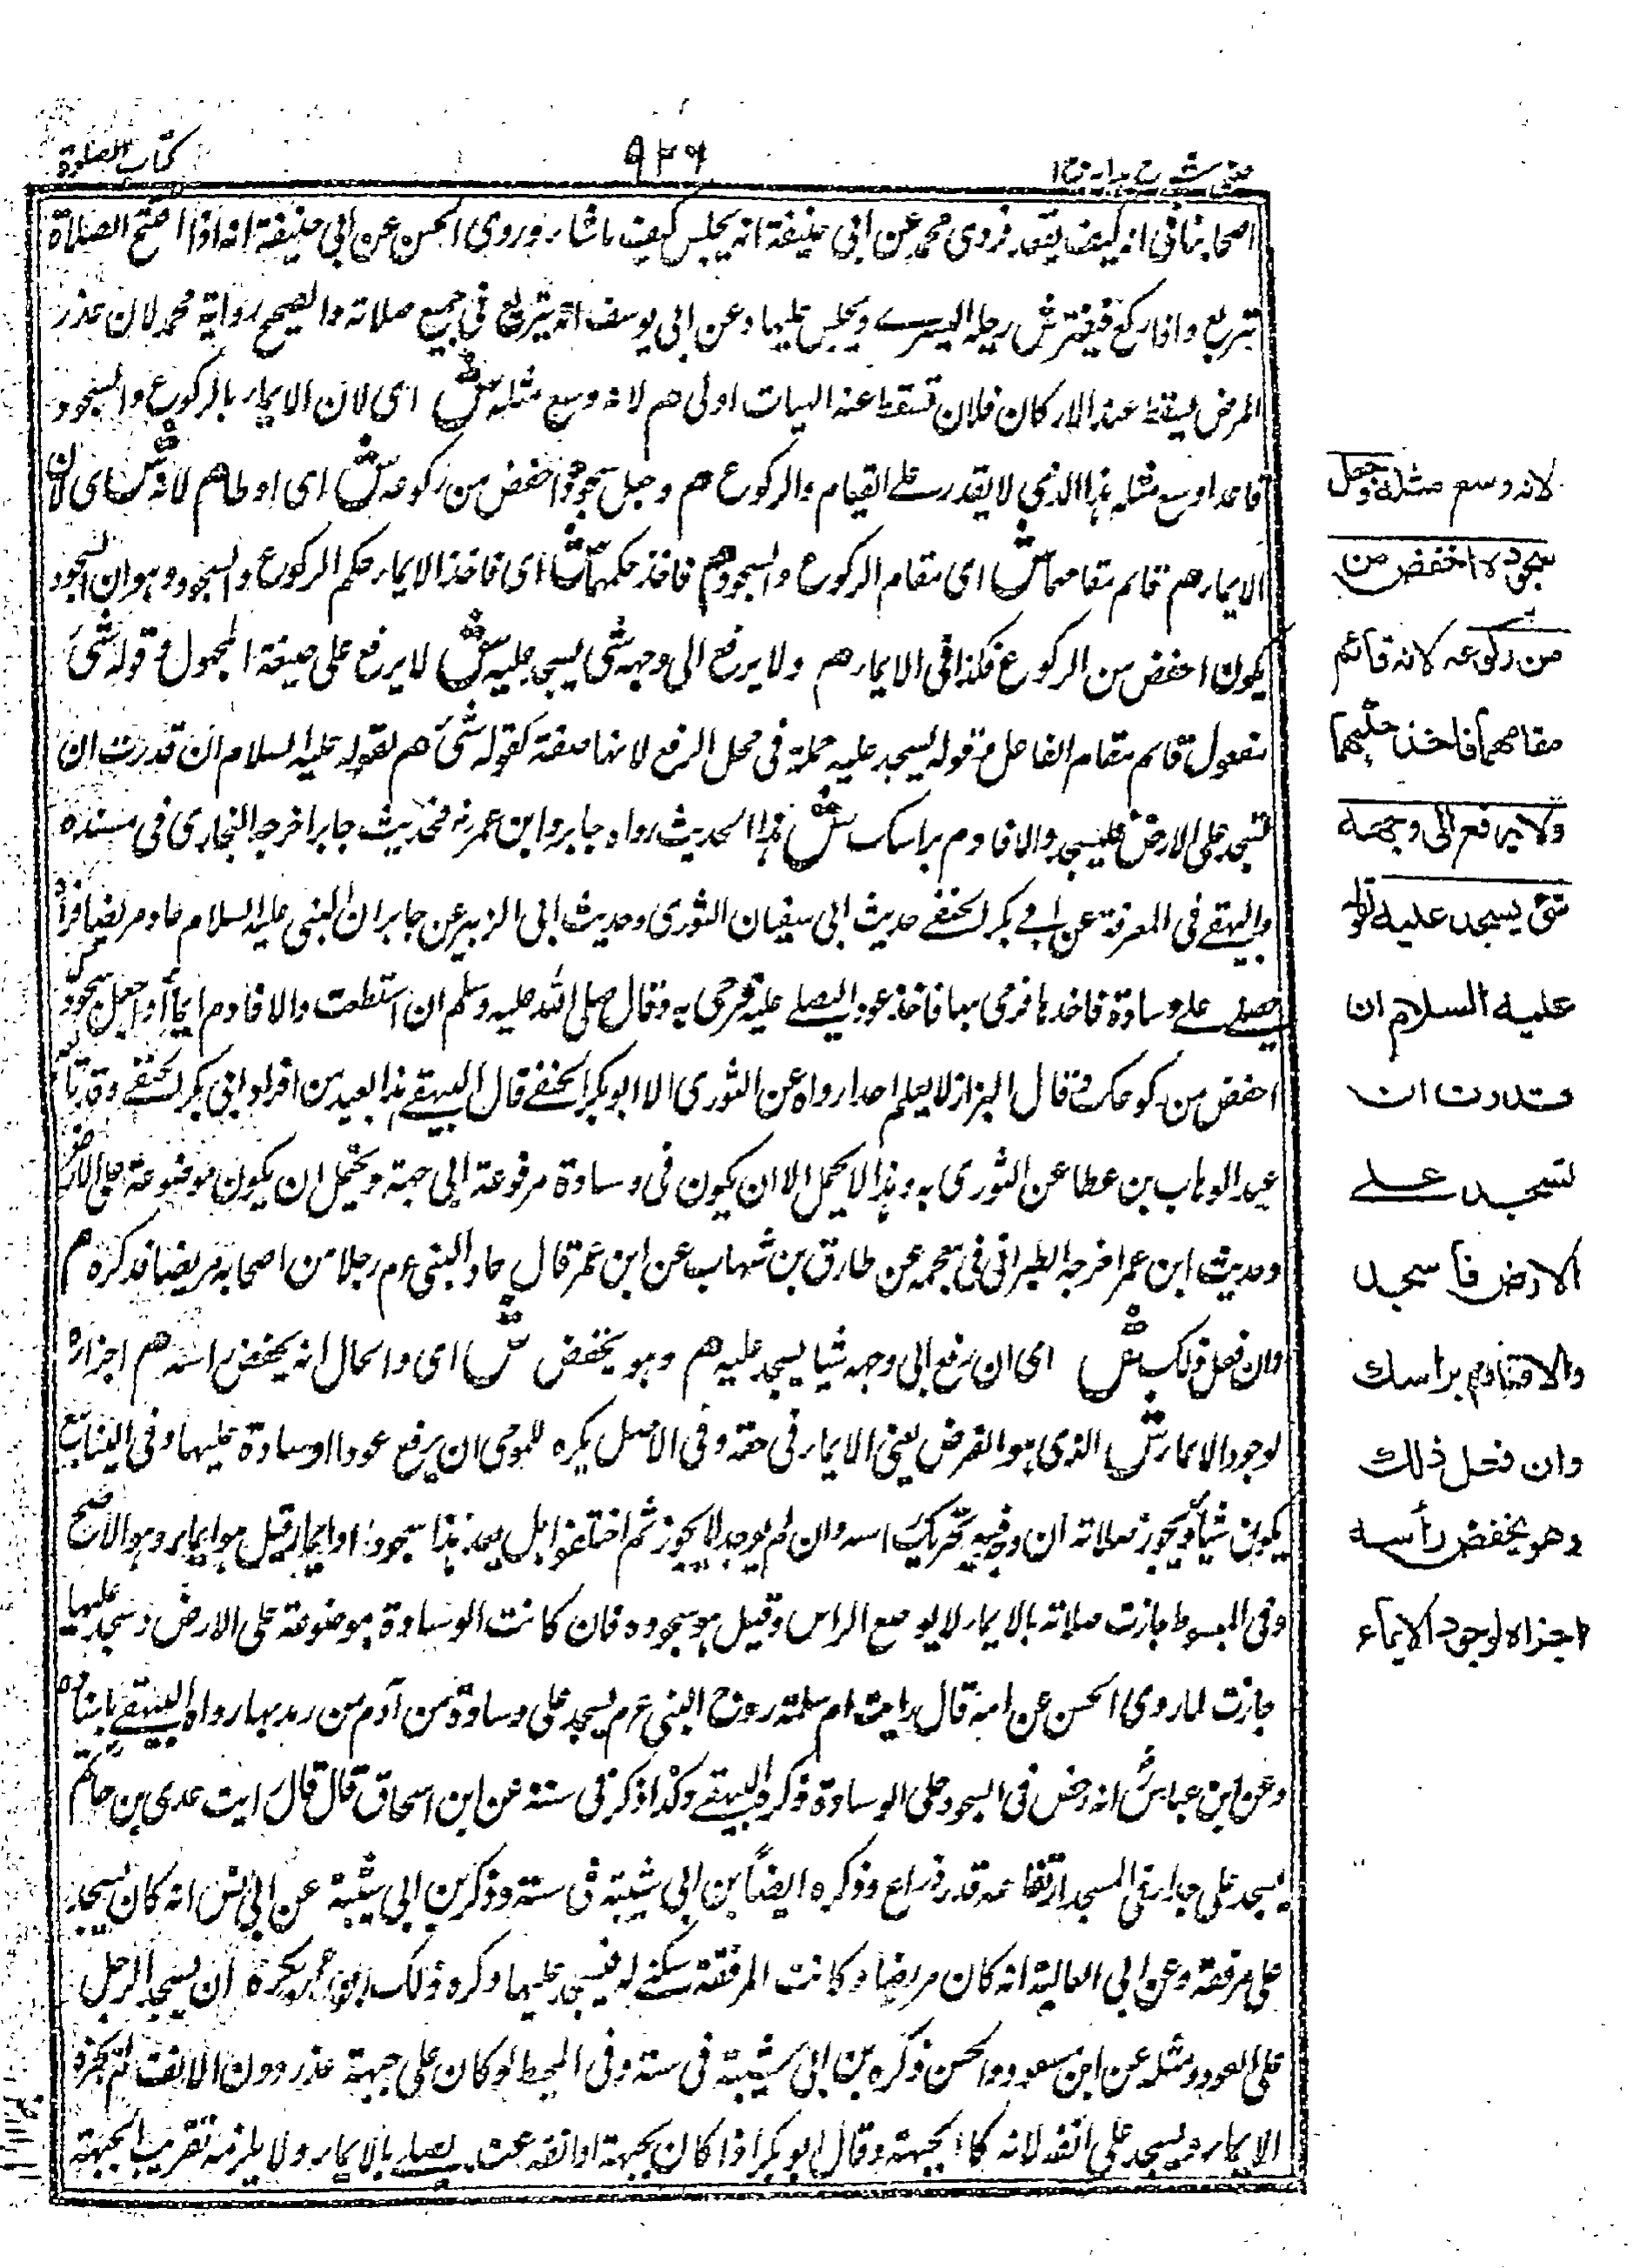 كتاب الصلوة
٩٢٦
عينى شرح هداية ج ١
اصحابنا فى انه كيف يقعد فروى محمد عن ابى حنيفة انه يجلس كيف ما شاء وروى الحسن عن ابى حنيفة انه اذا افتتح الصلاة
تربع واذا ركع فيفترش رجله اليسرے ويجلس عليها وعن ابى يوسف انه يتربع فى جميع صلاته والصحيح رواية محمد لان عذر
المرض يسقط عنه الاركان فلان تسقط عنه الهيات اولى هم لانه وسع مثله ش اى لان الايماء بالركوع والسجود
قاعدا وسع مثله هذا الذى لا يقدر على القيام والركوع هم وجعل سجوده اخفض من ركوعه ش اى اوطا هم لانه ش اى لان
الايماء هم قائم مقامهما ش اى مقام الركوع والسجود هم فاخذ حكمهما ش اى فاخذ الايماء حكم الركوع والسجود وهو ان السجود
يكون اخفض من الركوع فكذا فى الايماء هم ولا يرفع الى وجهه شى يسجد عليه ش لا يرفع على صيغة المجهول وقوله شئ
مفعول قائم مقام الفاعل وقوله يسجد عليه جملة فى محل الرفع لانها صفة كقوله شئ هم لقوله عليه السلام ان قدرت ان
تسجد على الارض فليسجد والا فاوم براسك ش هذا الحديث رواه جابر وابن عمر رضه فحديث جابر اخرجه البخارى فى مسنده
والبيهقے فى المعرفة عن ابے بكر الحنفے حديث ابى سفيان الثورى وحديث ابى الزبير عن جابر ان النبى عليه السلام عاد مريضا فراه
يصلے علے وسادة فاخذها فرمى بها فاخذ عودا ليصلے عليه فرمى به وقال صلى الله عليه وسلم ان استطعت والا فاوم ايماء واجعل سجودك
اخفض من ركوعك وقال البزاز لا يعلم احدا رواه عن الثورى الا ابو بكر الحنفے قال البيهقے هذا بعيد من افراد ابى بكر الحنفے وقد تابعه
عبد الوهاب بن عطا عن الثورى به وهذا لا يحمل الا ان يكون فى وسادة مرفوعة الى جبهة ويحتمل ان يكون موضوعة على الارض
وحديث ابن عمر اخرجه الطبرانى فى معجمه عن طارق بن شهاب عن ابن عمر قال عاد النبى عم رجلا من اصحابه مريضا فذكره هم
وان فعل ذلك ش اى ان رفع الى وجهه شيا يسجد عليه هم وهو يخفض ش اى والحال انه يخفض راسه هم اجزاه
لوجود الايماء ش الذى هو الفرض يعنى الايماء فى حقه وفى الاصل يكره للمومى ان يرفع عودا او وسادة عليها وفى الينابيع
يكون شيأ ويجوز صلاته ان وجد فيه تحريك راسه وان لم يوجد لا يجوز ثم اختلفوا هل يعد هذا سجودا او ايماء قيل هو ايماء وهو الاصح
وفى المبسوط جازت صلاته بالايماء لا بوضع الراس وقيل هو سجوده فان كانت الوسادة موضوعة على الارض وسجد عليها
جازت لما روى الحسن عن امه قال رايت ام سلمة زوج النبى عم يسجد على وسادة من آدم من رمد بها رواه البيهقے باسناده
وعن ابن عباس انه رخص فى السجود على الوسادة ذكره البيهقے وكذا ذكر فى سننه عن ابن اسحاق قال قال رايت عدى بن حاتم
يسجد على جدار فى المسجد ارتفاعه قدر ذراع وذكره ايضاً بن ابى شيبة فى سننه وذكر بن ابى شيبة عن انس انه كان يسجد
على مرفقة وعن ابى العالية انه كان مريضا وكانت المرفقة تثنے له فيسجد عليها وكره ذلك ابن عمر يكره ان يسجد الرجل
على العود ومثله عن ابن مسعود والحسن ذكره بن ابى شيبة فى سننه وفى المحيط لو كان على جبهة عذر دون الانف لم يجزه
الايماء ويسجد على انفه لانه كالجبهة وقال ابو بكر اذا كان بجبهة او انفه عذر يصلے بالايماء ولا يلزمه تقريب الجبهة
لانه وسع مثله وجعل
سجوده اخفض من
من ركوعه لانه قائم
مقامهما فاخذ حكمهما
ولا يرفع الى وجهه
شئ يسجد عليه لقوله
عليه السلام ان
قدرت ان
تسجد على
الارض فاسجد
والا فاوم براسك
وان فعل ذلك
وهو يخفض رأسه
اجزاه لوجود الايماء